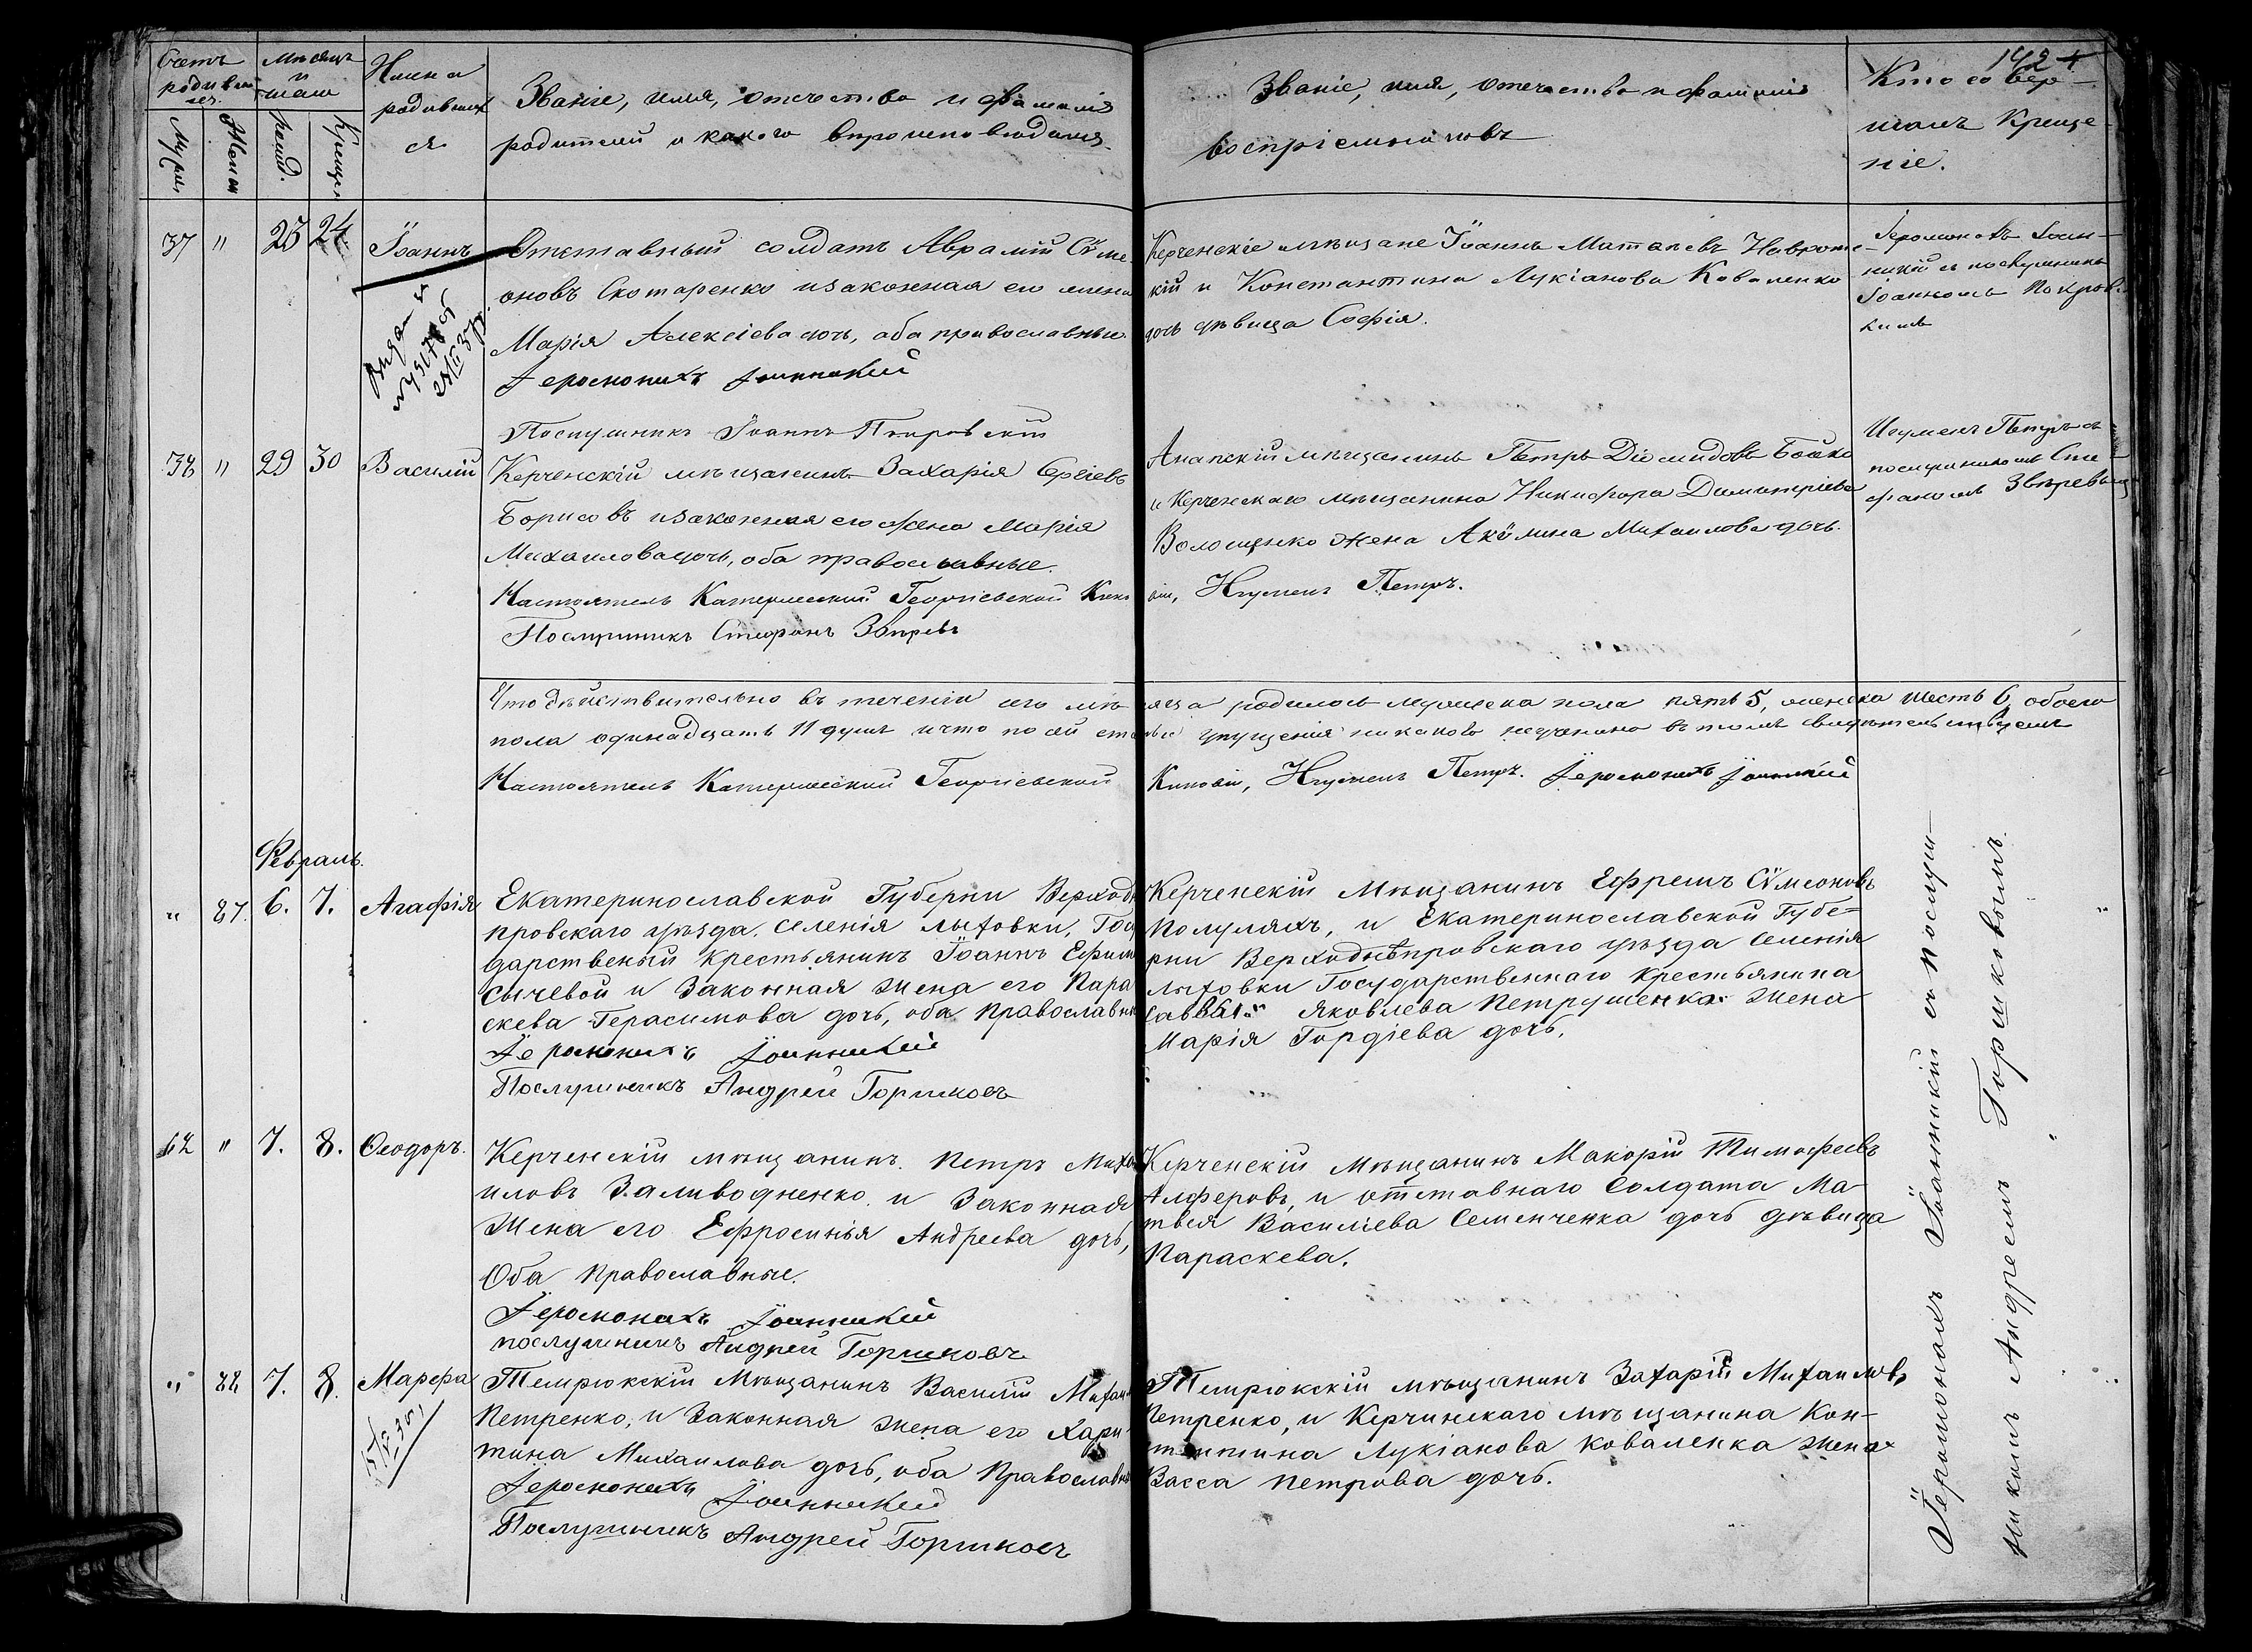 142
Счетъ родившихся.
Мѣсяцъ и число
Имена родившихся
Званіе, имя, отчество и фамилія
родителей и какого вѣроисповѣданія
Званіе, имя, отечество и фамилія
воспріемниковъ
Кто совер-
шалъ Креще-
ніе.
37 " 23 24
Іоаннъ
Отставный солдатъ Аврамій Сѵме-
оновъ Скотаренко и законная его жена
Марія Алексіева дочь, оба православные.
Іеромонахъ Іоанникій
Послушникъ Іоаннъ Покровскій
Керченскіе мѣщане Іоаннъ
кій и Константина Лукіанова Коваленко
дочь дѣвица Софія.
Іеромонахъ Іоан-
никій съ послушникомъ
Іоанномъ Покров-
скимъ
38 " 29 30
Василій
Керченскій мѣщанинъ Захарія Сергіевъ
Борисовъ и законная его жена Марія
Михаилова дочь, оба православные.
Настоятель Катерлесской Георгіевской Кино
Послушникъ Стефанъ Звѣревъ
Анапскій мѣщанинъ Петръ Діомидовъ Бойко
и Керченскаго мѣщанина Никифора Димитріева
Волощенко жена Акѵлина Михаилова дочь.
віи, Игуменъ Петръ.
Игуменъ Петръ съ
послушникомъ Сте-
фаномъ Звѣревымъ
Что дѣйствительно въ теченіи сего мѣсяца родилось мужеска пола пять 5, женска шесть 6, обоего
пола одинадцать 11 душъ и что по сей статьѣ упущенія никакого неучинено въ томъ свидѣтельствуемъ
Настоятель Катерлесской Георгіевской Киновіи, Игуменъ Петръ. Іеромонахъ Іоанникій
Февраль.
" 87. 6. 7.
Агафія
Екатеринославской Губерни Верходнѣ
провскаго уѣзда, селенія Лыховки, Госу
дарственый крестьянинъ Іоаннъ Ефим
Сычевой и Законная жена его Пара
скева Герасимова дочь, оба Православны
Іеромонахъ Іоанникій
Послушникъ Андрей Горшковъ
Керченскій Мѣщанинъ Ефремъ Сѵмеоновъ
Полуляхъ, и Екатеринославской Губе=
рни Верходнѣпровскаго уѣзда Селенія
Лыховки Государственнаго крестьянина
Яковлева Петрушенка жена
Марія Гордіева дочь.
" 7. 8.
Ѳеодоръ.
Керченскій мѣщанинъ Петръ Миха
иловъ Заливодненко и Законная
Жена его Ефросинія Андреева дочь,
Оба Православные.
Іеромонахъ Іоанникій
послушникъ Андрей Горшковъ
Керченскій Мѣщанинъ Макорій Тимофеевъ
Алферовъ, и отставнаго Солдата Ма-
твея Василіева Семенченка дочь дѣвица
Параскева.
" 88 7. 8.
Марфа
Темрюкскій Мѣщанинъ Василій Михаи
Петренко, и Законная жена его Хари-
тина Михаилова дочь, оба Православн
Іеромонахъ Іоанникій
Послушникъ Андрей Горшковъ
Темрюкскій мѣщанинъ Захарій Михаиловъ
Петренко, и Керчинскаго мѣщанина Кон-
стантина Лукіанова Коваленка жена
Васса Петрова дочь.
Іеромонахъ Іоанникій съ послуш-
никомъ Андреемъ Горшковымъ.